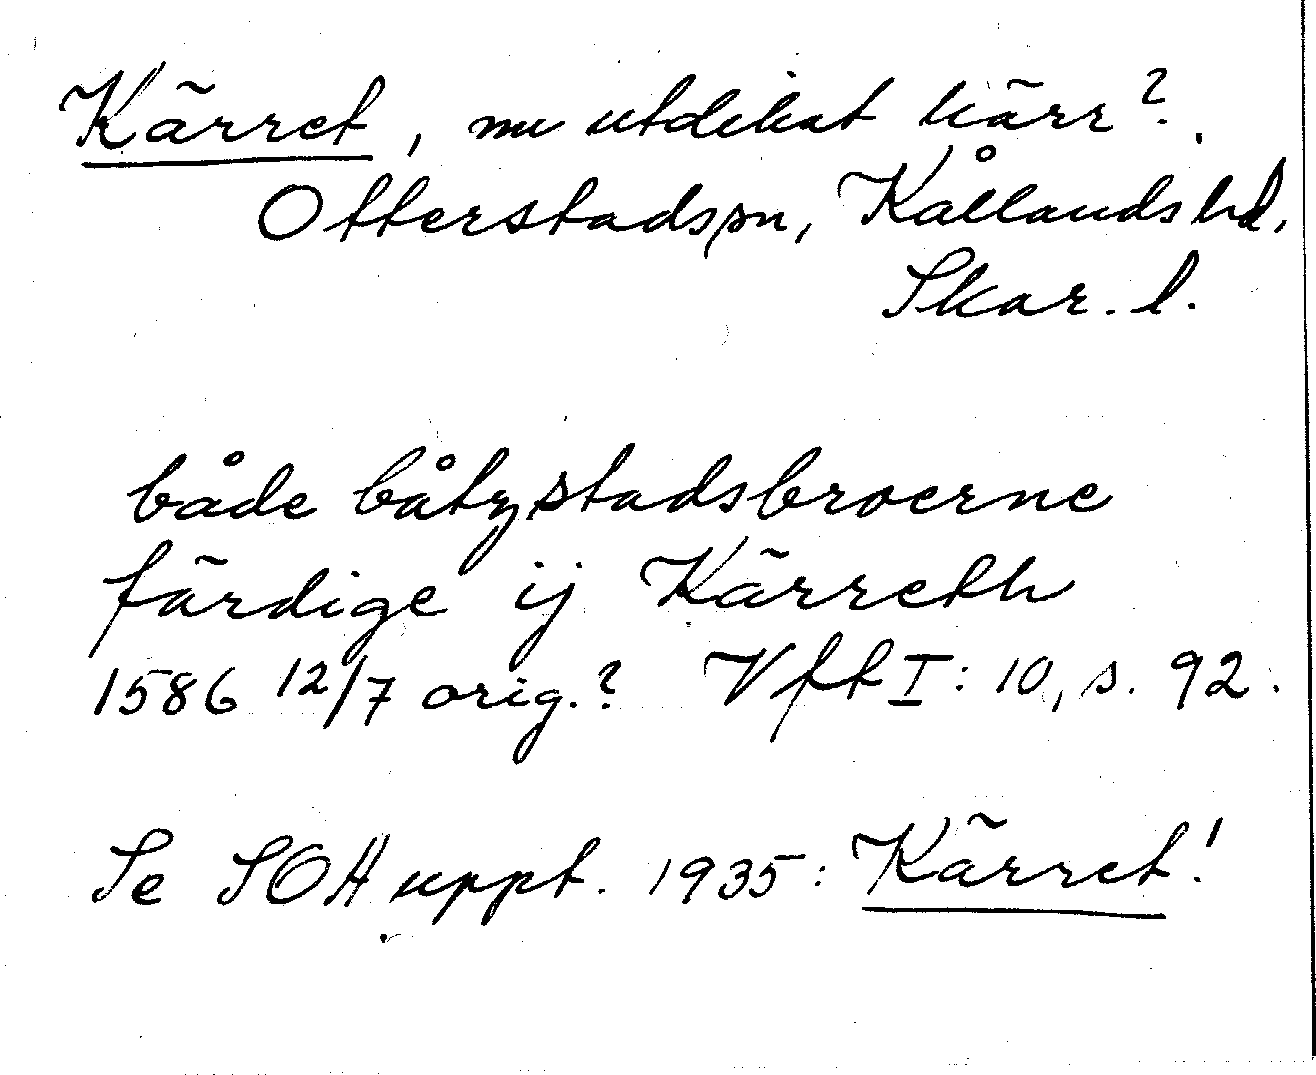 Kärret, nu utdikat kärr?.
Otterstads sn, Kållands hd,
Skar. l.
både båtzstadsbroerne
färdige ij Kärreth
1586 12/7 orig.? Vft I: 10, s. 92.
Se SOH uppt. 1935: Kärret!